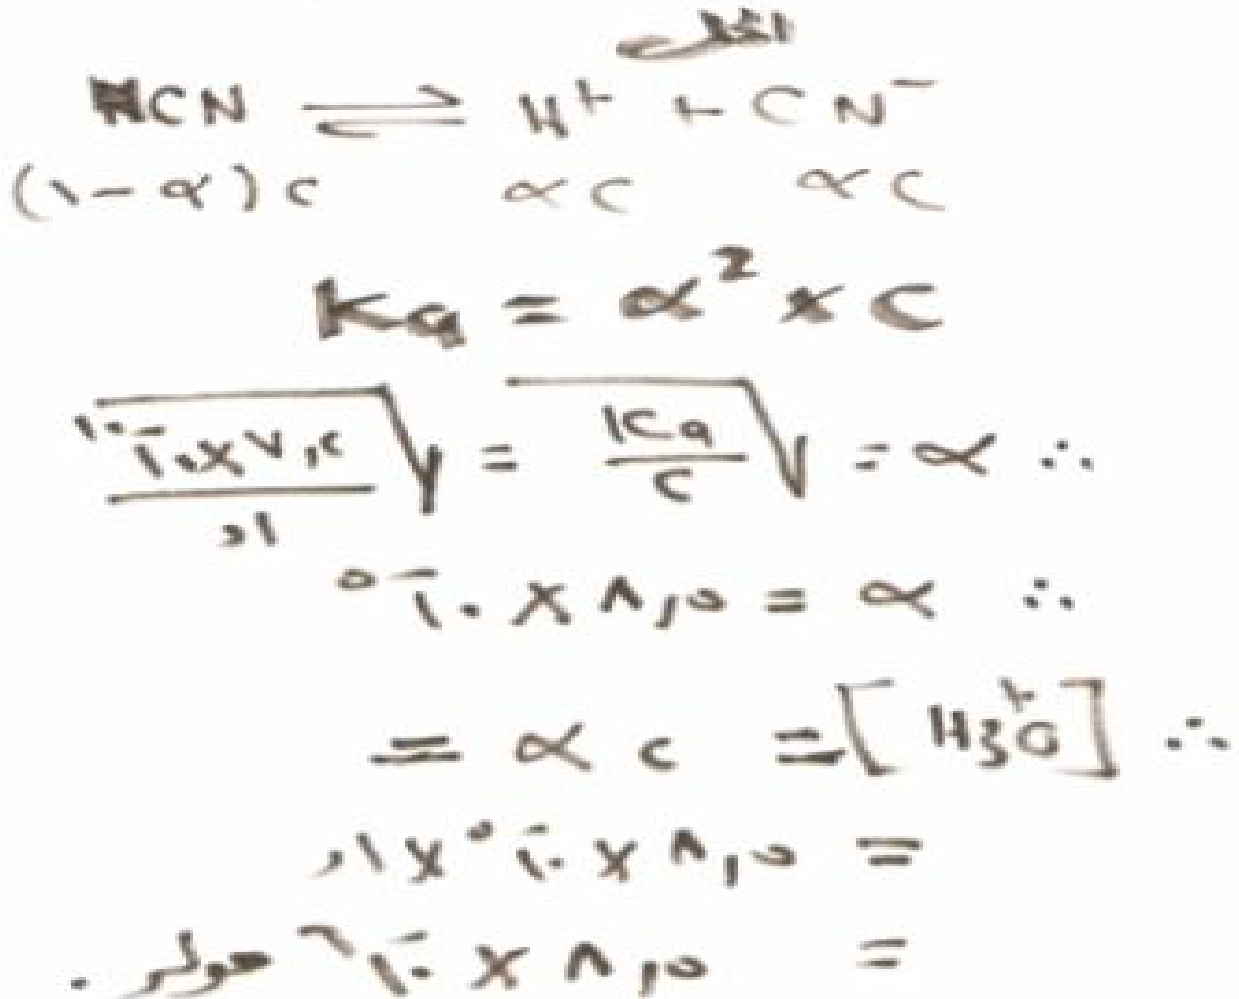 الحل
HCN ⇌ H⁺ + CN⁻
(١ − α) c αc αc
Ka = α² × C
∴ α = √(Ka/C) = √(٧,٢ × ١٠⁻¹⁰ / ,١)
∴ α = ٨,٥ × ١٠⁻⁵
∴ [H₃O⁺] = αc =
= ٨,٥ × ١٠⁻⁵ × ١,
= ٨,٥ × ١٠⁻⁶ مولر .